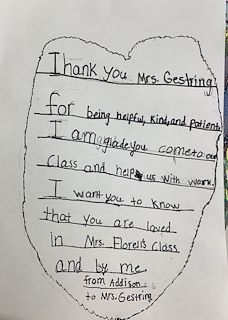 Thank you Mrs. Gestring
for being helpful, kind, and patient.
I am glade you come to our
class and help us with work.
I want you to know
that you are loved
in Mrs. Florell's class
and by me
from Addison
to Mrs. Gestring